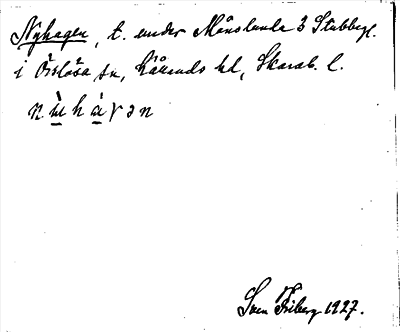 Nyhagen, t. under Månslunda 3 Stubbeg.
i Örslösa sn, Kållands hd, Skarab. l.
nỳhàγən
Sven Friberg 1927.